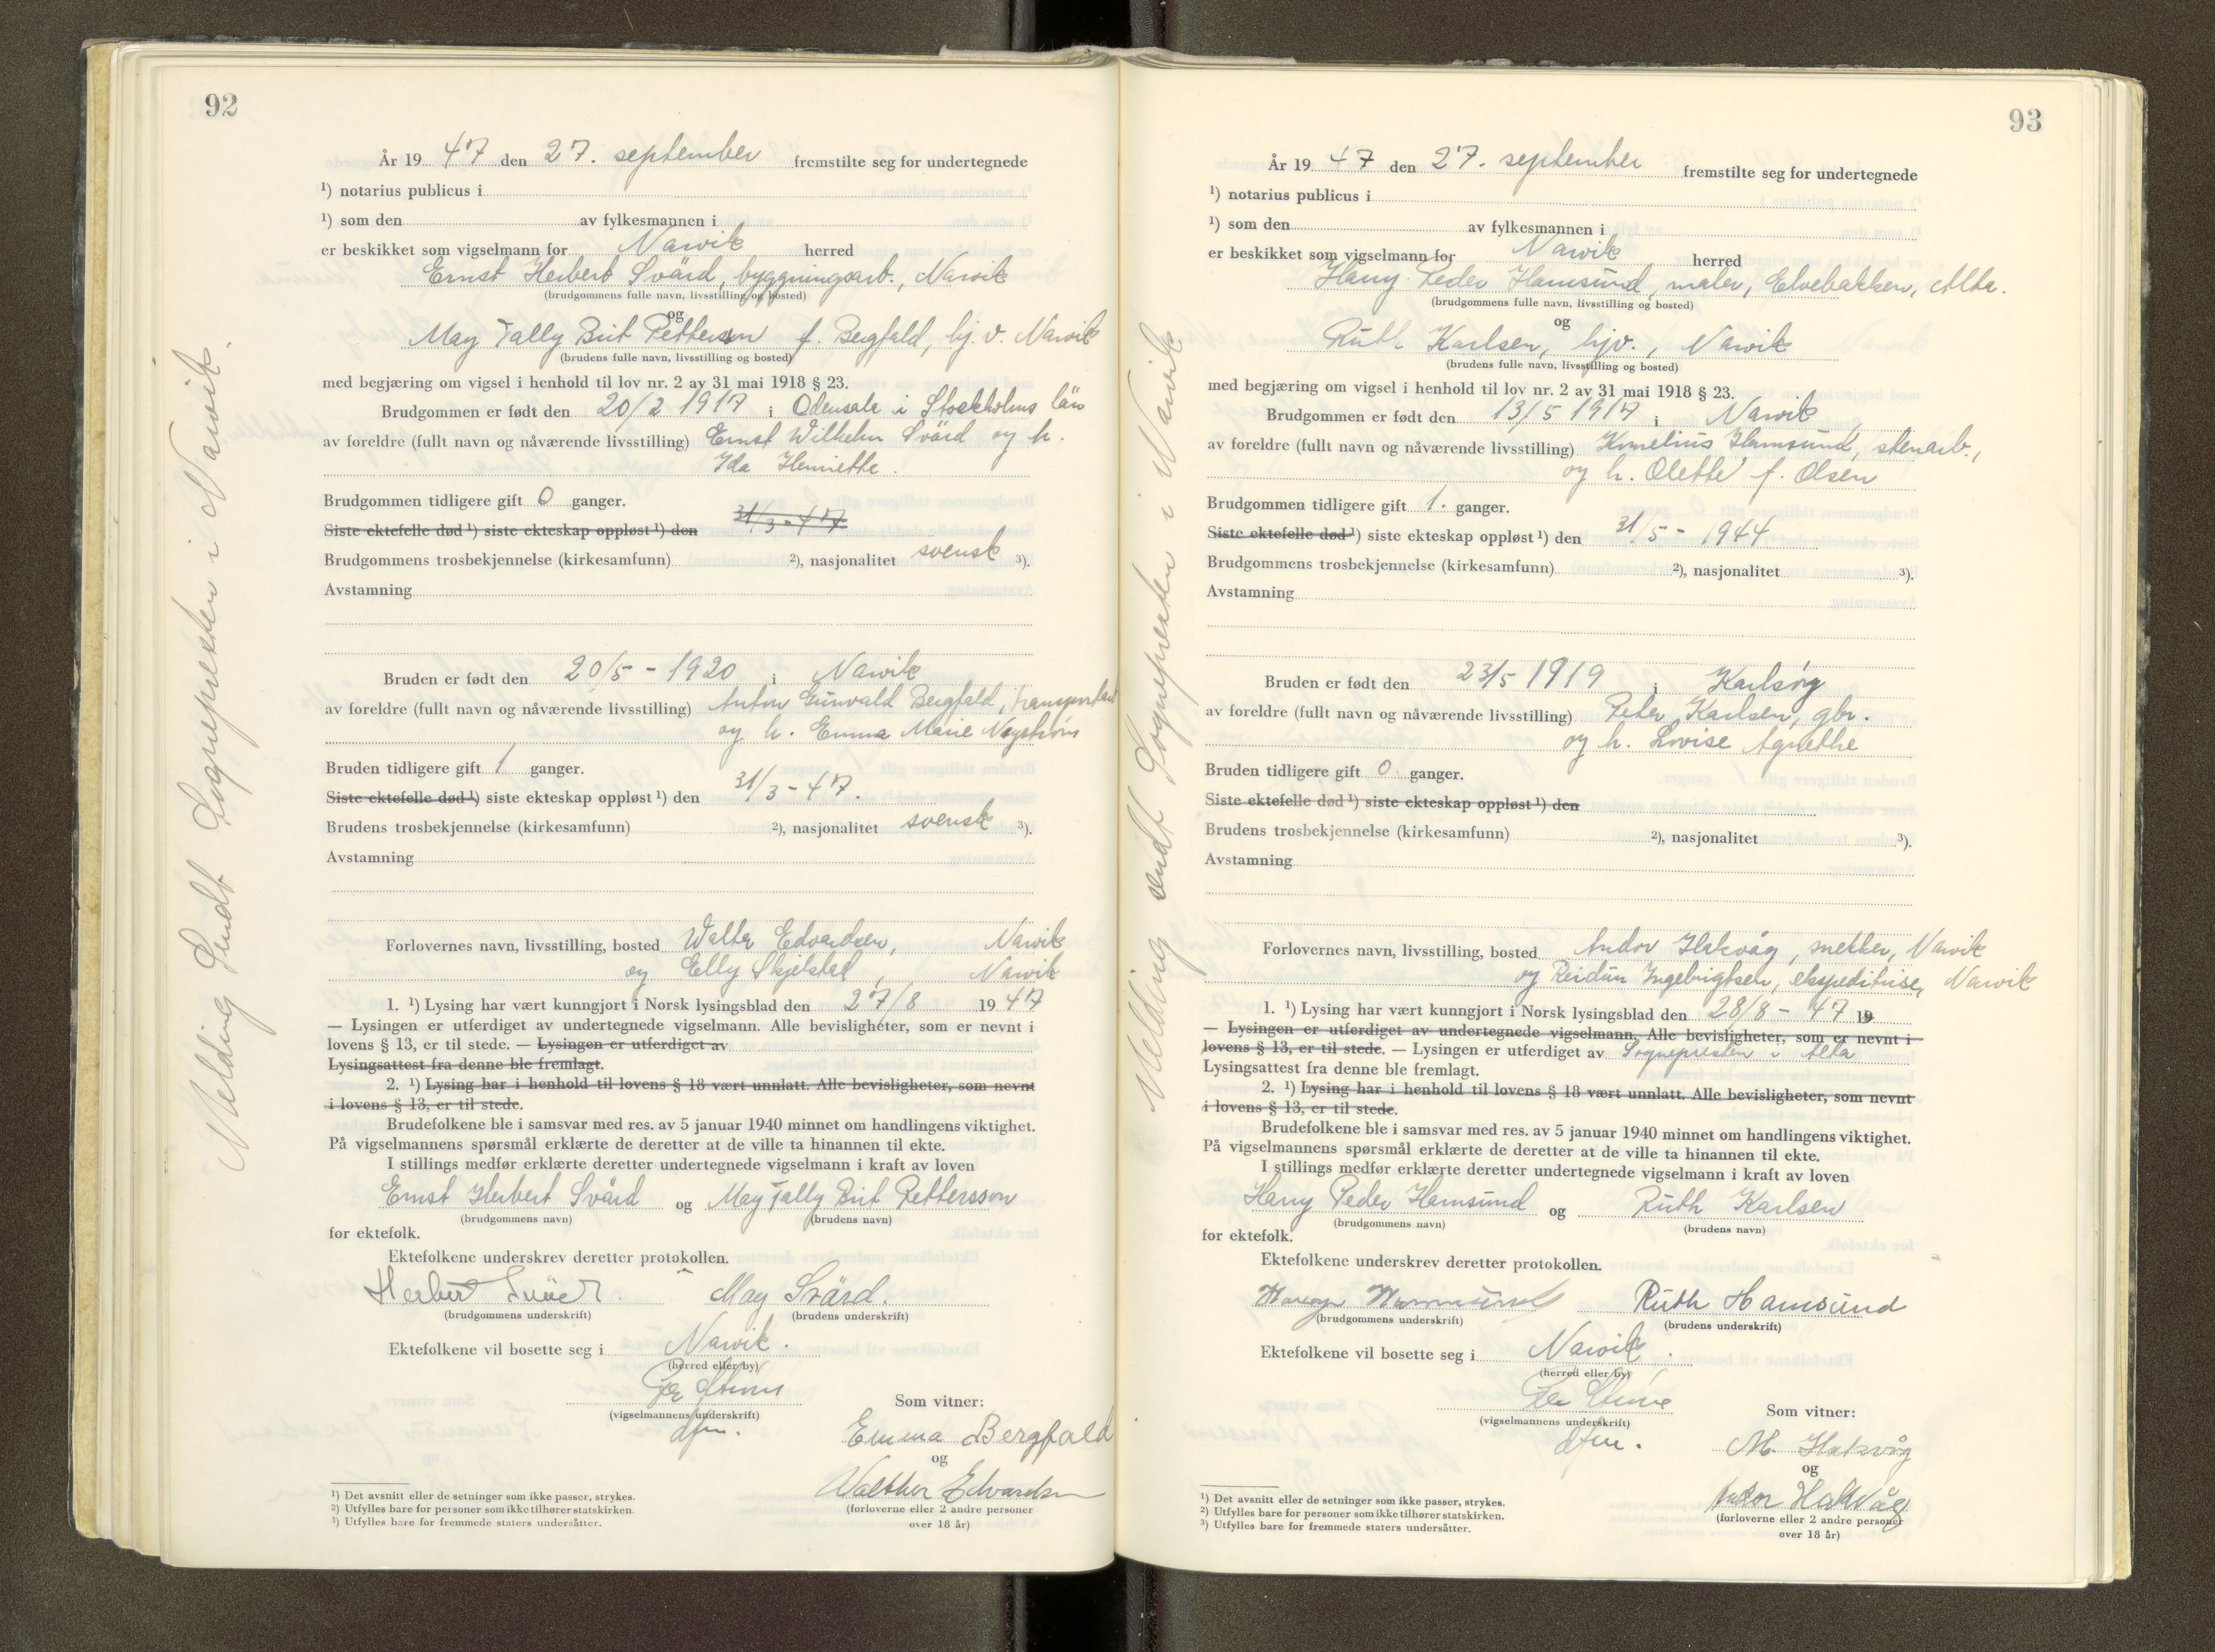 92
Melding Sendt Sognepresten i Narvik.
År 19 47 den 27. september fremstilte seg for undertegnede
¹) notarius publicus i
¹) som den av fylkesmannen i
er beskikket som vigselmann for Narvik herred
Ernst Herbert Svärd, byggningsarb., Narvik
(brudgommens fulle navn, livsstilling og bosted)
og
May Tally Brit Petterson f. Bergfald, hj. v. Narvik
(brudens fulle navn, livsstilling og bosted)
med begjæring om vigsel i henhold til lov nr. 2 av 31 mai 1918 § 23.
Brudgommen er født den 20/2 1917 i Odensala i Stockholms län
av foreldre (fullt navn og nåværende livsstilling) Ernst Wilhelm Svärd og h.
Ida Henriette.
Brudgommen tidligere gift 0 ganger.
Siste ektefelle død ¹) siste ekteskap oppløst ¹) den 31/3 - 47
Brudgommens trosbekjennelse (kirkesamfunn) ²), nasjonalitet svensk ³).
Avstamning
Bruden er født den 20/5 - 1920 i Narvik
av foreldre (fullt navn og nåværende livsstilling) Anton Gunvald Bergfald,
og h. Emma Marie Nystrøm
Bruden tidligere gift 1 ganger.
Siste ektefelle død ¹) siste ekteskap oppløst ¹) den 31/3 - 47.
Brudens trosbekjennelse (kirkesamfunn) ²), nasjonalitet svensk ³).
Avstamning
Forlovernes navn, livsstilling, bosted Walter Edvardsen, Narvik
og Elly Skjelstad, Narvik
1. ¹) Lysing har vært kunngjort i Norsk lysingsblad den 27/8 19 47
— Lysingen er utferdiget av undertegnede vigselmann. Alle bevisligheter, som er nevnt i
lovens § 13, er til stede. — Lysingen er utferdiget av
Lysingsattest fra denne ble fremlagt.
2. ¹) Lysing har i henhold til lovens § 18 vært unnlatt. Alle bevisligheter, som nevnt
i lovens § 13, er til stede.
Brudefolkene ble i samsvar med res. av 5 januar 1940 minnet om handlingens viktighet.
På vigselmannens spørsmål erklærte de deretter at de ville ta hinannen til ekte.
I stillings medfør erklærte deretter undertegnede vigselmann i kraft av loven
Ernst Herbert Svärd og May Tally Brit Pettersson
(brudgommens navn) (brudens navn)
for ektefolk.
Ektefolkene underskrev deretter protokollen.
Herbert Svärd May Svärd.
(brudgommens underskrift) (brudens underskrift)
Ektefolkene vil bosette seg i Narvik.
(herred eller by)
(vigselmannens underskrift)
Som vitner:
Emma Bergfald
og
Walther Edvardsen
(forloverne eller 2 andre personer
over 18 år)
¹) Det avsnitt eller de setninger som ikke passer, strykes.
²) Utfylles bare for personer som ikke tilhører statskirken.
³) Utfylles bare for fremmede staters undersåtter.
93
Melding sendt Sognepresten i Narvik
År 19 47 den 27. september fremstilte seg for undertegnede
¹) notarius publicus i
¹) som den av fylkesmannen i
er beskikket som vigselmann for Narvik herred
Harry Peder Hamsund, maler, Elvebakken, Alta.
(brudgommens fulle navn, livsstilling og bosted)
og
Ruth Karlsen, hjv., Narvik
(brudens fulle navn, livsstilling og bosted)
med begjæring om vigsel i henhold til lov nr. 2 av 31 mai 1918 § 23.
Brudgommen er født den 13/5 1917 i Narvik
av foreldre (fullt navn og nåværende livsstilling) Kornelius Hamsund, stenarb.,
og h. Olette f. Olsen
Brudgommen tidligere gift 1. ganger.
Siste ektefelle død ¹) siste ekteskap oppløst ¹) den 31/5 - 1944
Brudgommens trosbekjennelse (kirkesamfunn) ²), nasjonalitet ³).
Avstamning
Bruden er født den 23/5 1919 i Karlsøy
av foreldre (fullt navn og nåværende livsstilling) Peter Karlsen, gbr.
og h. Lovise Agnethe
Bruden tidligere gift 0 ganger.
Siste ektefelle død ¹) siste ekteskap oppløst ¹) den
Brudens trosbekjennelse (kirkesamfunn) ²), nasjonalitet ³).
Avstamning
Forlovernes navn, livsstilling, bosted Andor Hakvåg, snekker, Narvik
og Reidun Ingebrigtsen, ekspeditrise, Narvik
1. ¹) Lysing har vært kunngjort i Norsk lysingsblad den 28/8 - 47 19
— Lysingen er utferdiget av undertegnede vigselmann. Alle bevisligheter, som er nevnt i
lovens § 13, er til stede. — Lysingen er utferdiget av Sognepresten i Alta
Lysingsattest fra denne ble fremlagt.
2. ¹) Lysing har i henhold til lovens § 18 vært unnlatt. Alle bevisligheter, som nevnt
i lovens § 13, er til stede.
Brudefolkene ble i samsvar med res. av 5 januar 1940 minnet om handlingens viktighet.
På vigselmannens spørsmål erklærte de deretter at de ville ta hinannen til ekte.
I stillings medfør erklærte deretter undertegnede vigselmann i kraft av loven
Harry Peder Hamsund og Ruth Karlsen
(brudgommens navn) (brudens navn)
for ektefolk.
Ektefolkene underskrev deretter protokollen.
Harry Hamsund Ruth Hamsund
(brudgommens underskrift) (brudens underskrift)
Ektefolkene vil bosette seg i Narvik.
(herred eller by)
(vigselmannens underskrift)
Som vitner:
M. Hakvåg
og
Andor Hakvåg
(forloverne eller 2 andre personer
over 18 år)
¹) Det avsnitt eller de setninger som ikke passer, strykes.
²) Utfylles bare for personer som ikke tilhører statskirken.
³) Utfylles bare for fremmede staters undersåtter.